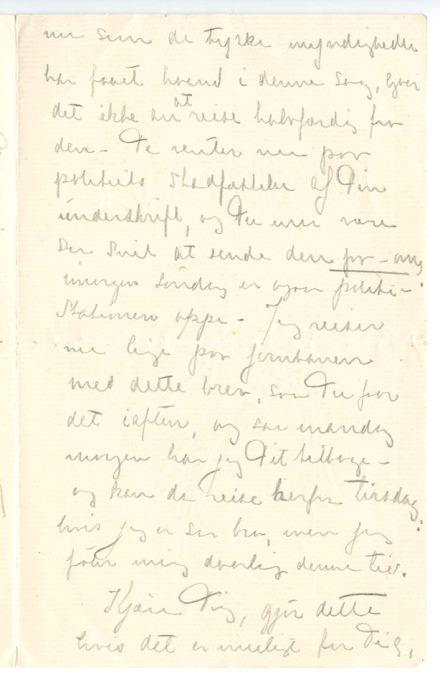 nu som de tyske myndigheder
har faaet haand i denne sag, gaar
det ikke an at reise halvfærdig fra
den – De venter nu paa
politiets Stadfæstelse af Din
underskrift, og Du maa være
saa snil at sende den
imorgen Søndag er ogsaa politi-
stationen oppe – Jeg reiser
nu lige paa jernbanen
med dette brev, saa Du faar
det iaften, og saa mandag
morgen har jeg Dit tilbage –
og kan da reise herfra tirsdag:
hvis jeg er saa bra, men jeg
føler mig daarlig denne tid.
Kjære Dig, gjør dette
hvis det er muligt for Dig,